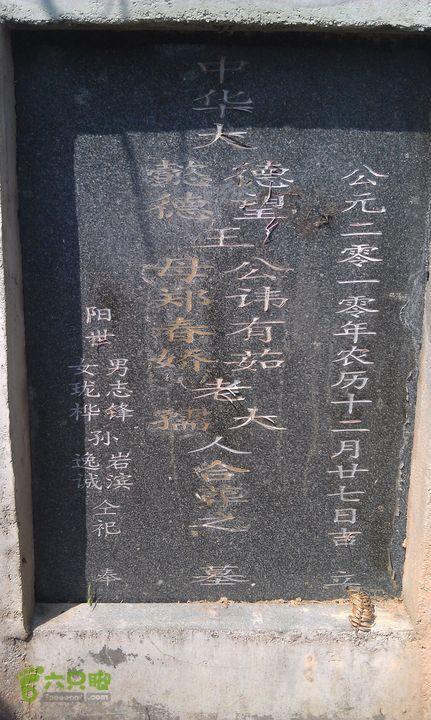 公元二零一零年农历十二月廿七日吉立
中华大
德望
懿德
王
公讳有茹大
母郑春娇孺
老人合葬之墓
阳世
男志锋
女珑桦
孙岩滨
逸诚
仝祀奉
六只脚